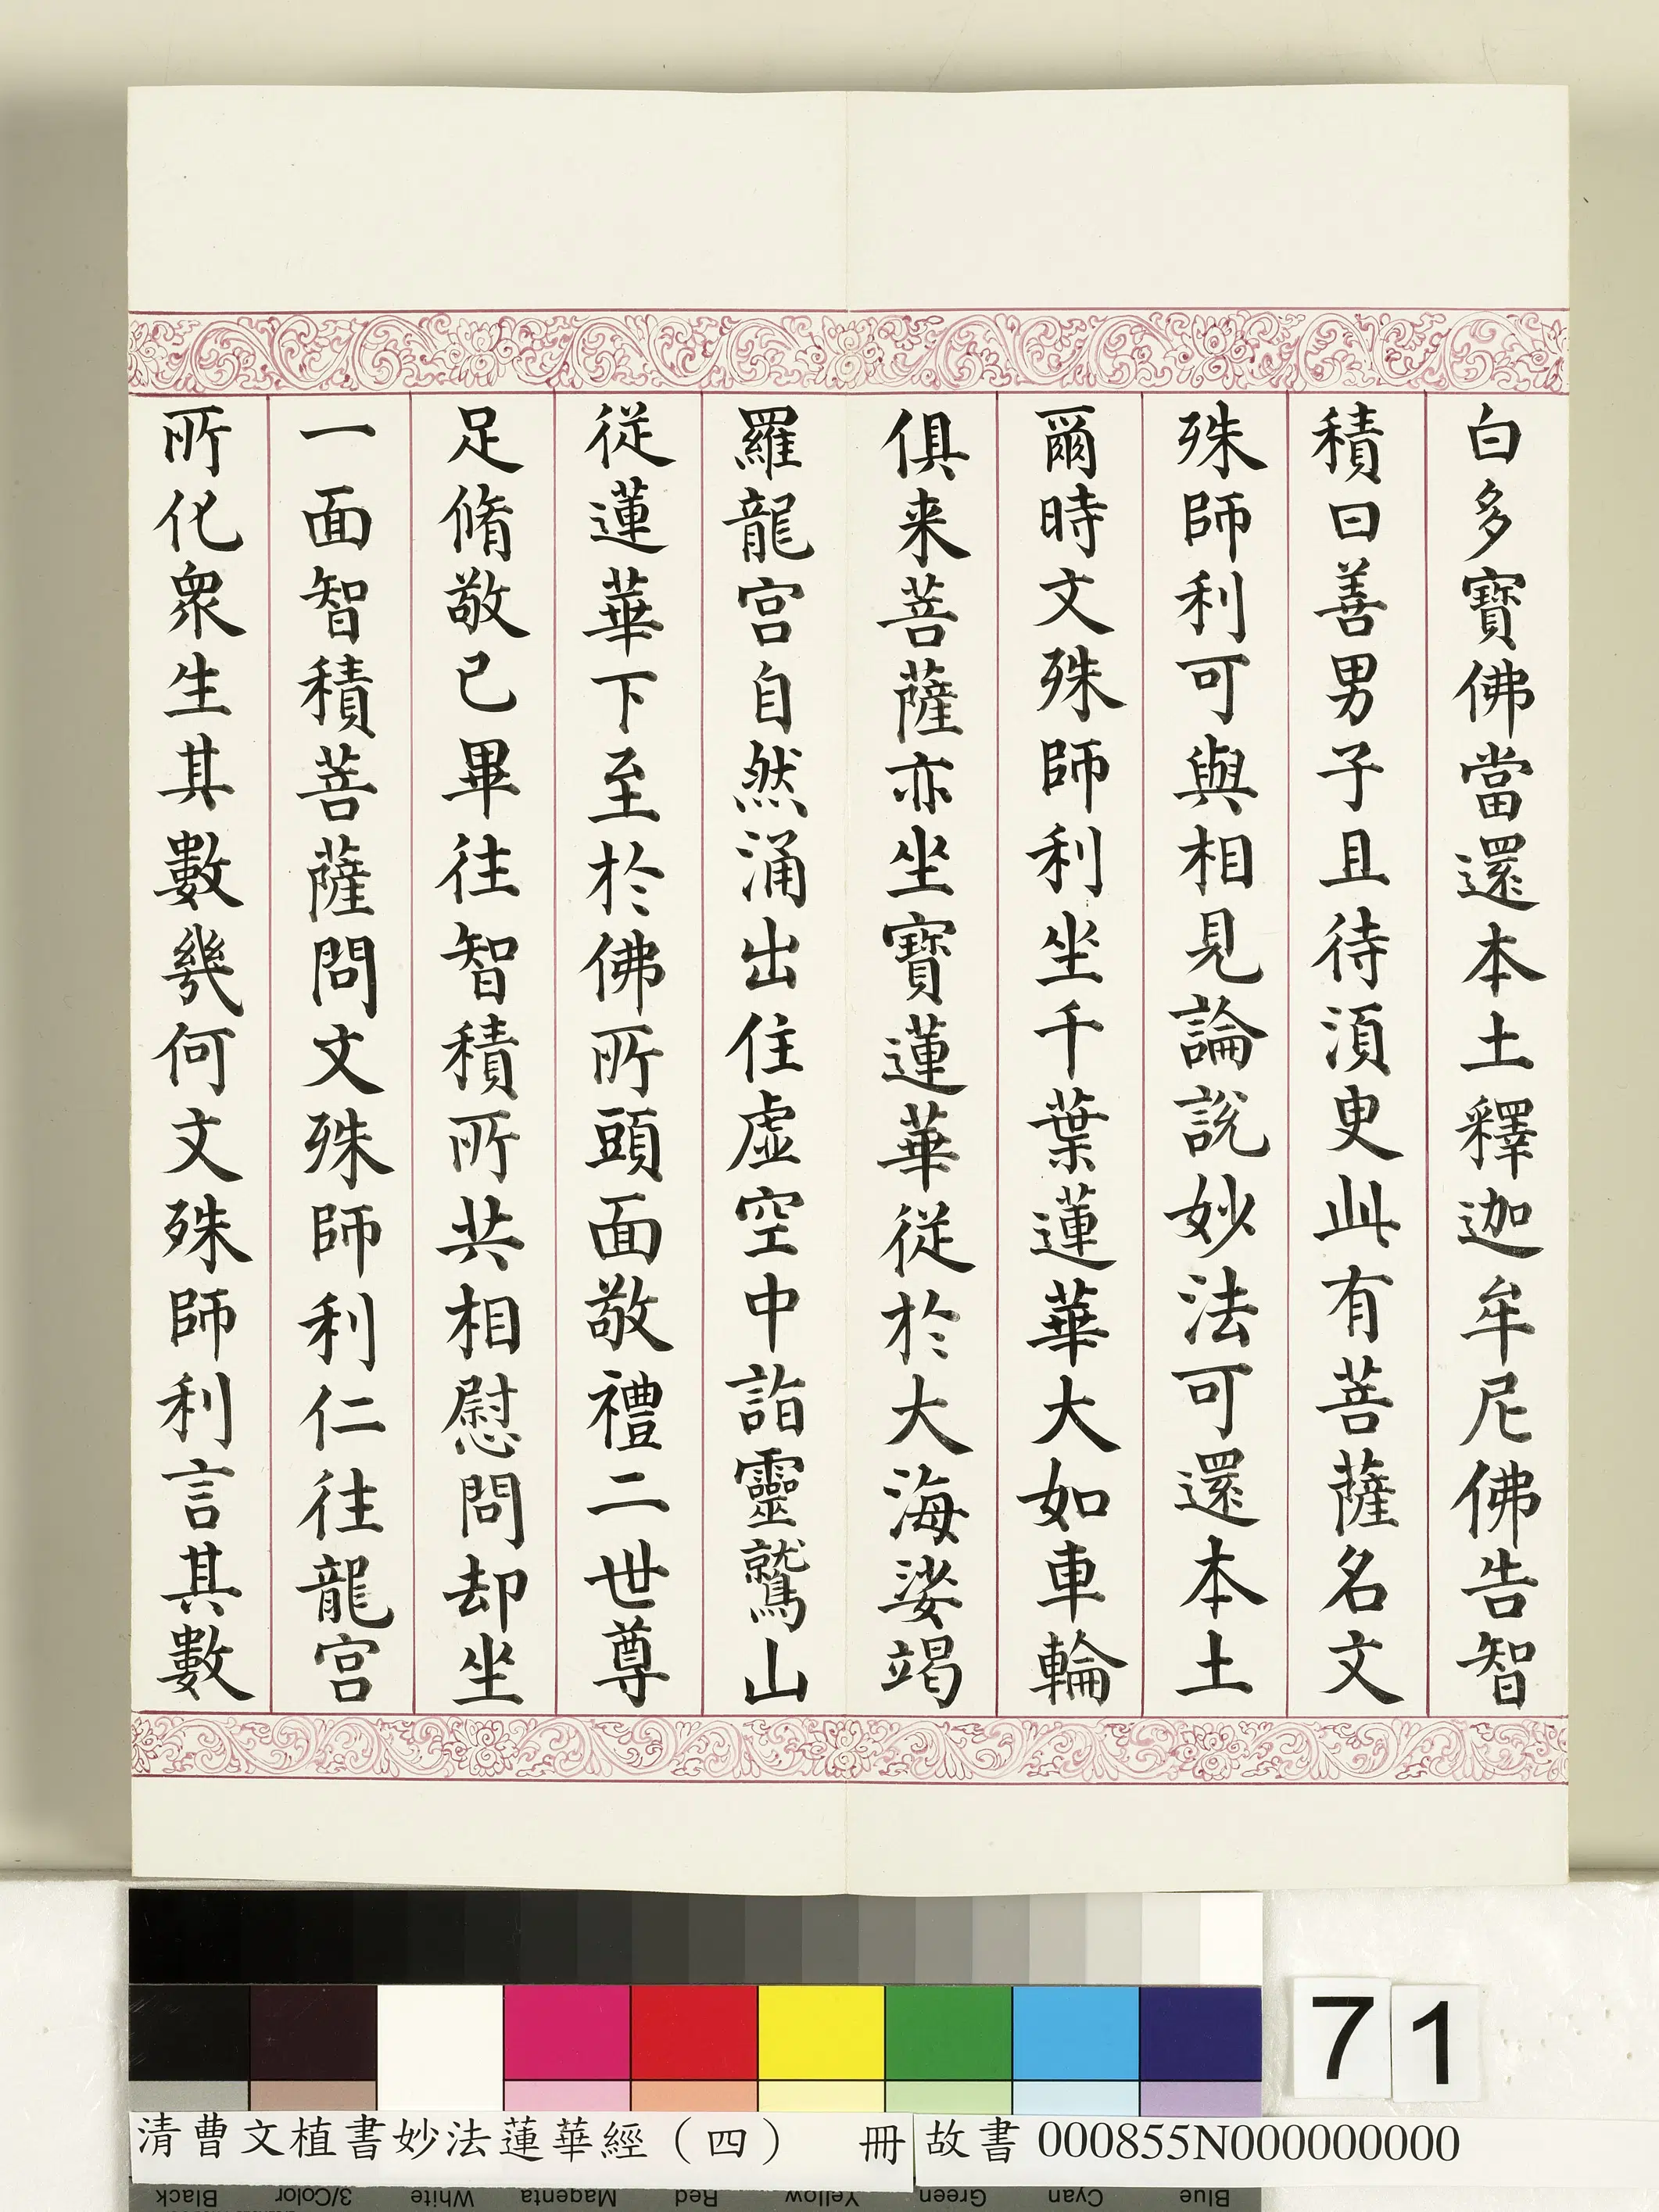 白多寶佛當還本土釋迦牟尼佛告智
積曰善男子且待湏臾此有菩薩名文
殊師利可與相見論說妙法可還本土
爾時文殊師利坐千葉蓮華大如車輪
俱来菩薩亦坐寶蓮華從於大海娑竭
羅龍宮自然涌出住虛空中詣靈鷲山
從蓮華下至於佛所頭面敬禮二世尊
足脩敬已畢往智積所共相慰問却坐
一面智積菩薩問文殊師利仁往龍宮
所化衆生其數幾何文殊師利言其數
71
清曹文植書妙法蓮華經（四） 冊
故書 000855N000000000
Black 3/Color White Magenta Red Yellow Green Cyan Blue